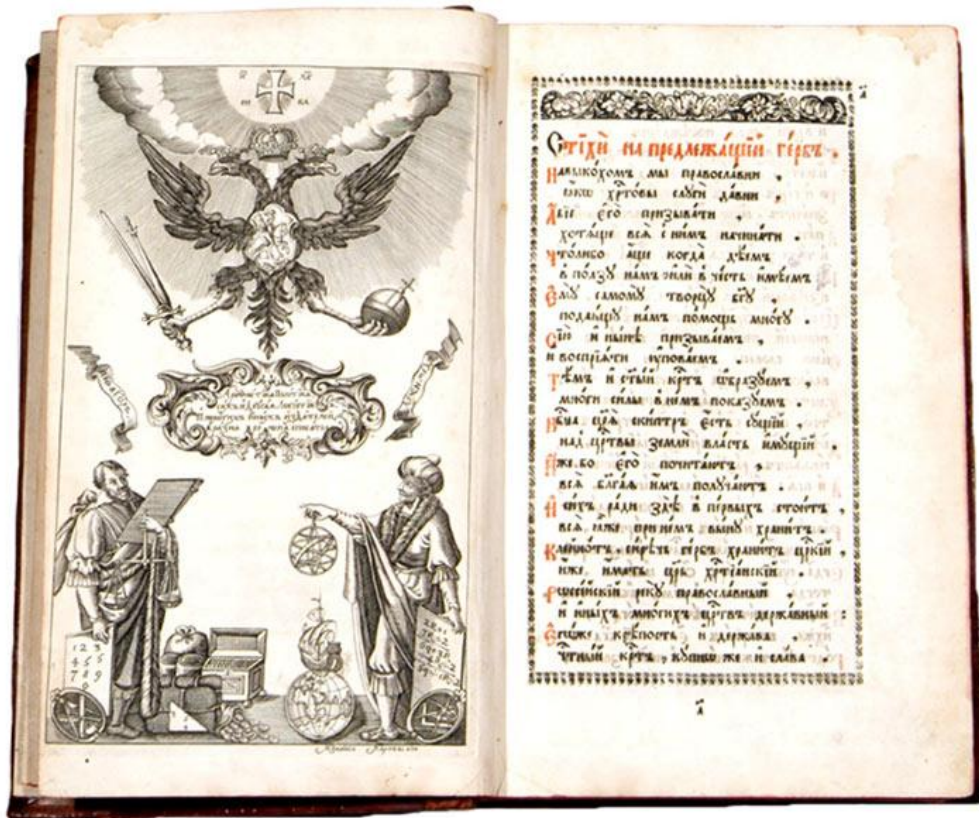 І҃С Х҃С
НИ КА
1 2 3
4 5 6
7 8 9
0
Стїхѝ на предлежа́щїй ге́рбъ .
Навыко́хомъ мы̀ правосла́вни ,
ꙗ҆́кѡ хр҃то́вы слꙋгѝ да́вни .
А҆́бїе є҆го̀ призыва́ти ,
хотѧ́ще всѧ̀ с̾ ни́мъ начина́ти .
Что́либо а҆́ще когда̀ дѣ́емъ
в̾ по́лзꙋ на́мъ и҆лѝ в̾ че́сть и҆мѣ́емъ
Є҆мꙋ̀ самомꙋ̀ творцꙋ̀ бг҃ꙋ ,
подаю́щꙋ на́мъ по́мощь мно́гꙋ .
Сїѐ и҆ ны́нѣ призыва́емъ ,
и҆ воспрїѧ́ти ᲂу҆пова́емъ .
Тѣ́мъ и҆ ст҃ы́й кр҃тъ ѡ҆бразꙋ́емъ ,
мно́ги си́лы в̾ не́мъ пока́зꙋемъ .
Нб҃а цр҃ѧ̀ ски́птръ є҆́сть сꙋ́щїй ,
над̾ цр҃твы землѝ вла́сть и҆мꙋ́щїй
И҆̀же бо є҆го̀ почита́ютъ ,
всѧ̀ бл҃га́ѧ и҆́мъ полꙋча́ютъ .
И҆ си́хъ ра́ди здѣ̀ в̾ пе́рвыхъ стои́тъ ,
всѧ̀ ꙗ҆̀же при не́мъ вы́нꙋ храни́тъ .
Клейно́тъ , си́рѣчь ге́рбъ храни́тъ цр҃кїй ,
и҆́же и҆́мать цр҃ь хр҃тїа́нскїй .
Рѡссі́йскїй рекꙋ̀ правосла́вный
и҆ и҆ны́хъ мно́гихъ цр҃твъ держа́вный :
Є҆мꙋ́же крѣ́пость и҆ держа́ва ,
чтны́й кр҃тъ , кꙋ́пнѡ же и҆ сла́ва
а҃